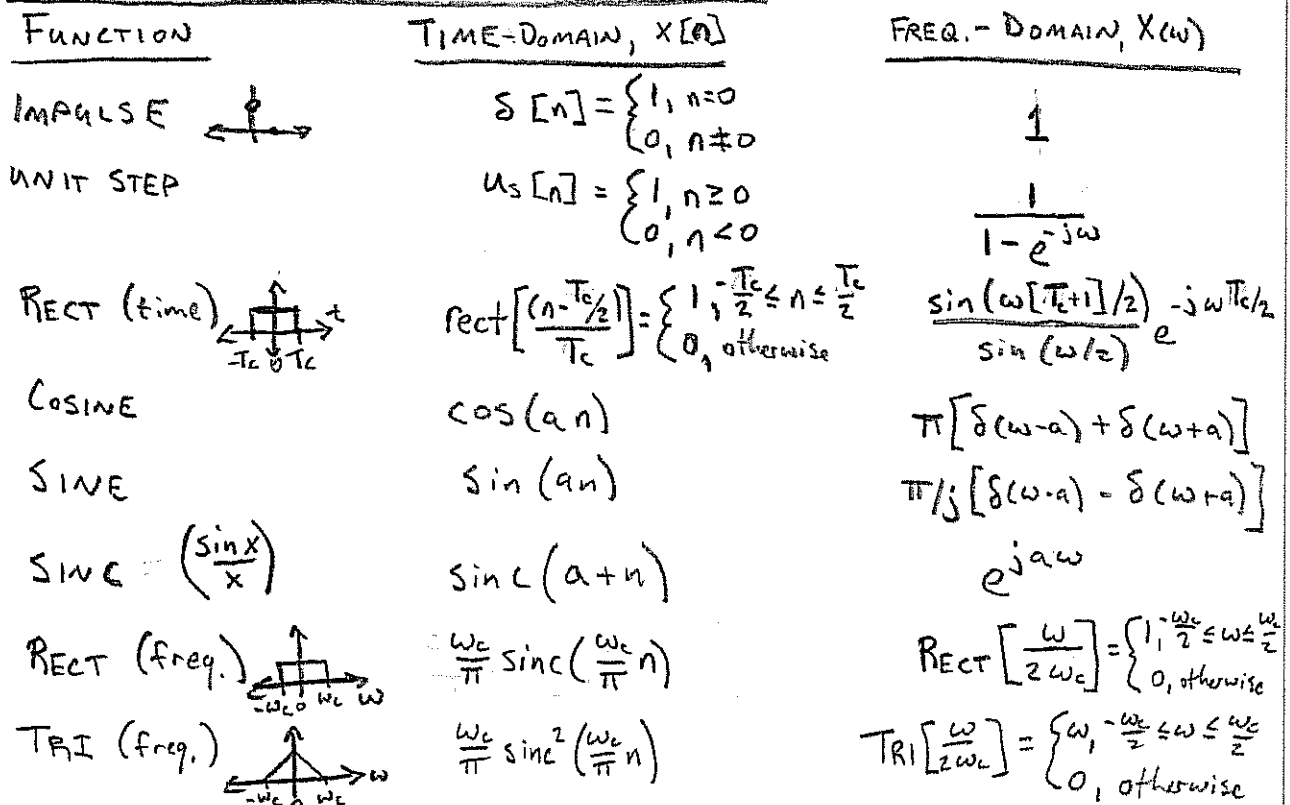 FUNCTION TIME-DOMAIN, X[n] FREQ.-DOMAIN, X(ω)
IMPULSE δ[n] = {1, n=0 1
0, n≠0
UNIT STEP u_s[n] = {1, n≥0 1/(1-e^{-jω})
0, n<0
RECT (time) -Tc 0 Tc t rect[(n-Tc/2)/Tc] = {1, -Tc/2 ≤ n ≤ Tc/2 sin(ω[Tc+1]/2)/sin(ω/2) e^{-jωTc/2}
0, otherwise
COSINE cos(an) π[δ(ω-a) + δ(ω+a)]
SINE sin(an) π/j[δ(ω-a) - δ(ω+a)]
SINC (sin x/x) sinc(a+n) e^{jaω}
RECT (freq.) -ωc 0 ωc ω ωc/π sinc(ωc/π n) RECT[ω/2ωc] = {1, -ωc/2 ≤ ω ≤ ωc/2
0, otherwise
TRI (freq.) -ωc 0 ωc ω ωc/π sinc²(ωc/π n) TRI[ω/2ωc] = {ω, -ωc/2 ≤ ω ≤ ωc/2
0, otherwise